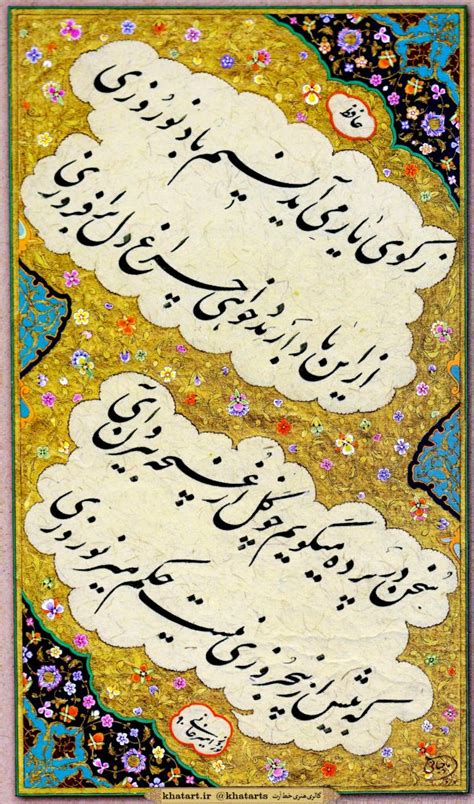 حافظ
ز کوی یار می آید نسیم باد نوروزی
از این باد ار مدد خواهی چراغ دل برافروزی
سخن در پرده میگویم چو گل از غنچه بیرون آی
که بیش از پنج روزی نیست حکم میر نوروزی
گالری هنری خط ارت @khatarts khatart.ir